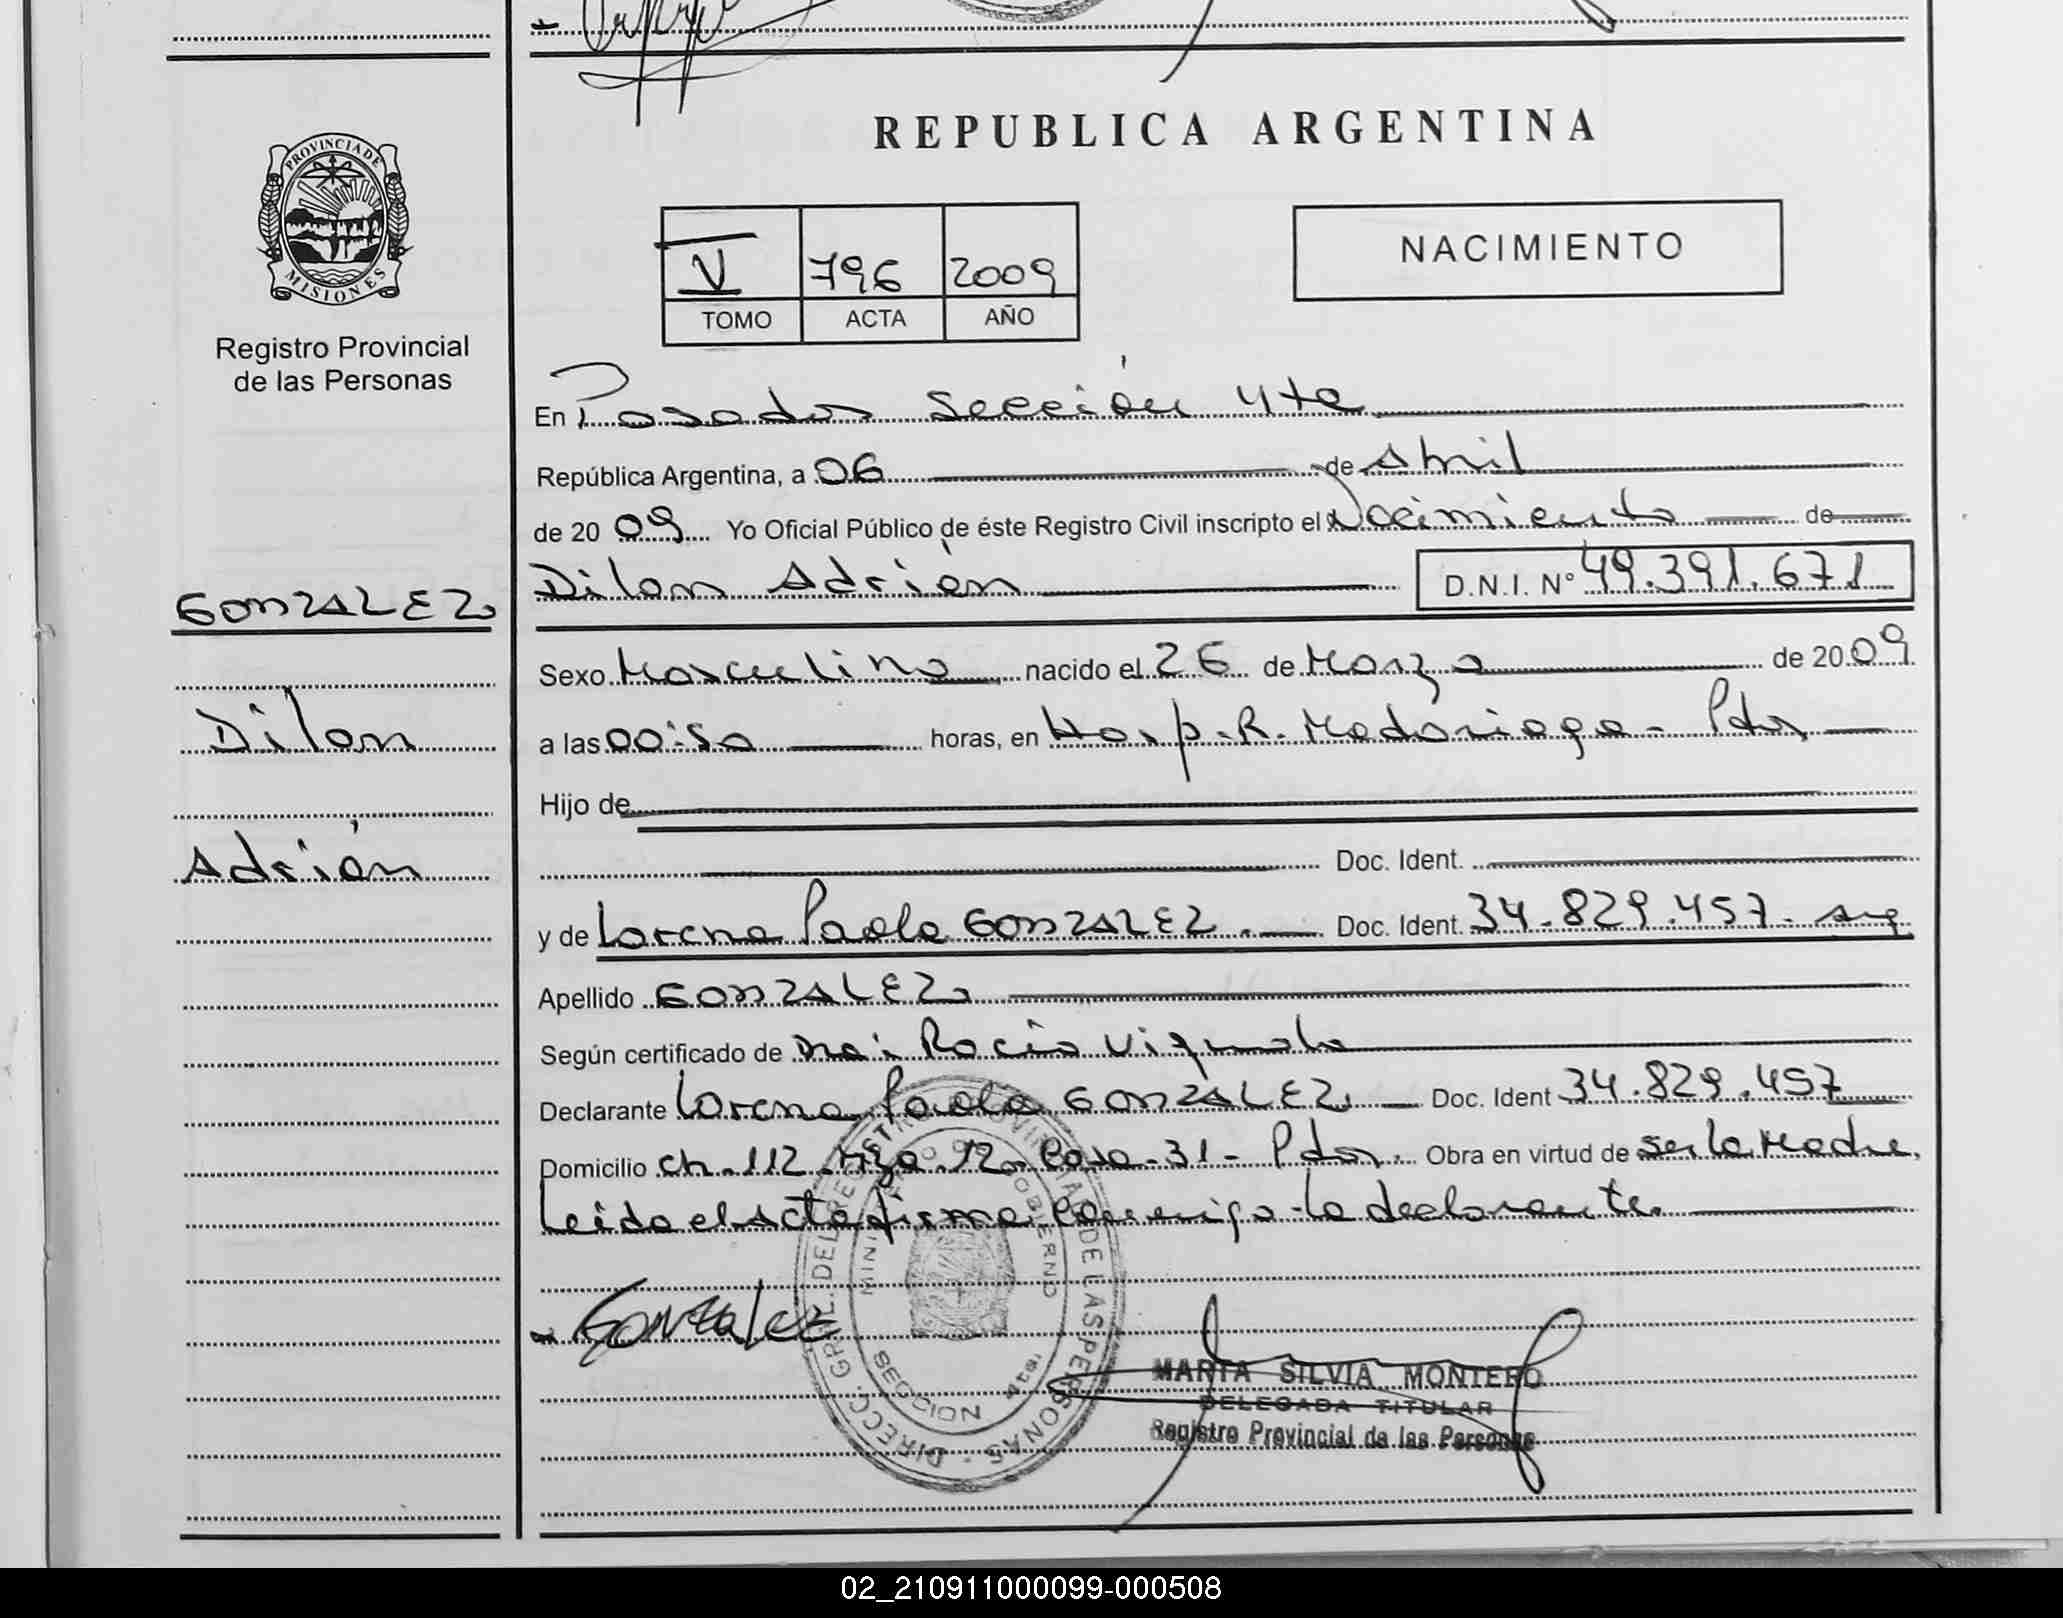 REPUBLICA ARGENTINA
PROVINCIA DE
MISIONES
Registro Provincial
de las Personas
V 796 2009
TOMO ACTA AÑO
NACIMIENTO
En Posadas Sección 4ta
República Argentina, a 06 de Abril
de 2009 Yo Oficial Público de éste Registro Civil inscripto el Nacimiento de
Dilan Adrián D.N.I. Nº 49.391.671
GONZALEZ
Sexo Masculino nacido el 26 de Marzo de 2009
Dilan
a las 00:50 horas, en Hosp. R. Madariaga - Pdas
Hijo de
Doc. Ident.
Adrián
y de Lorena Paola GONZALEZ. Doc. Ident. 34.829.457. Arg
Apellido GONZALEZ
Según certificado de Dra: Rocío
Declarante Lorena Paola GONZALEZ Doc. Ident 34.829.457
Domicilio ch. 112 Mza. 12 Casa - 31 - Pdas. Obra en virtud de ser la Madre,
Leída el Acta firma conmigo la declarante.
DIRECC. GRAL. DEL REGISTRO PROVINCIAL DE LAS PERSONAS
GOBIERNO
SECCION 4ta
Gonzalez
MARTA SILVIA MONTERO
DELEGADA TITULAR
Registro Provincial de las Personas
02_210911000099-000508